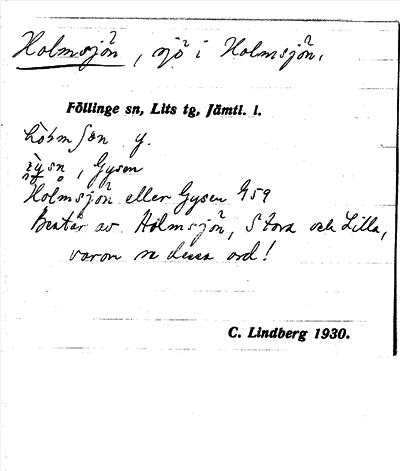 Holmsjön, sjö i Holmsjön.
Föllinge sn, Lits tg, Jämtl. l.
y.
, Gysen
Holmsjön eller Gysen 959
Består av Holmsjön, Stora och Lilla,
varom se dessa ord!
C. Lindberg 1930.